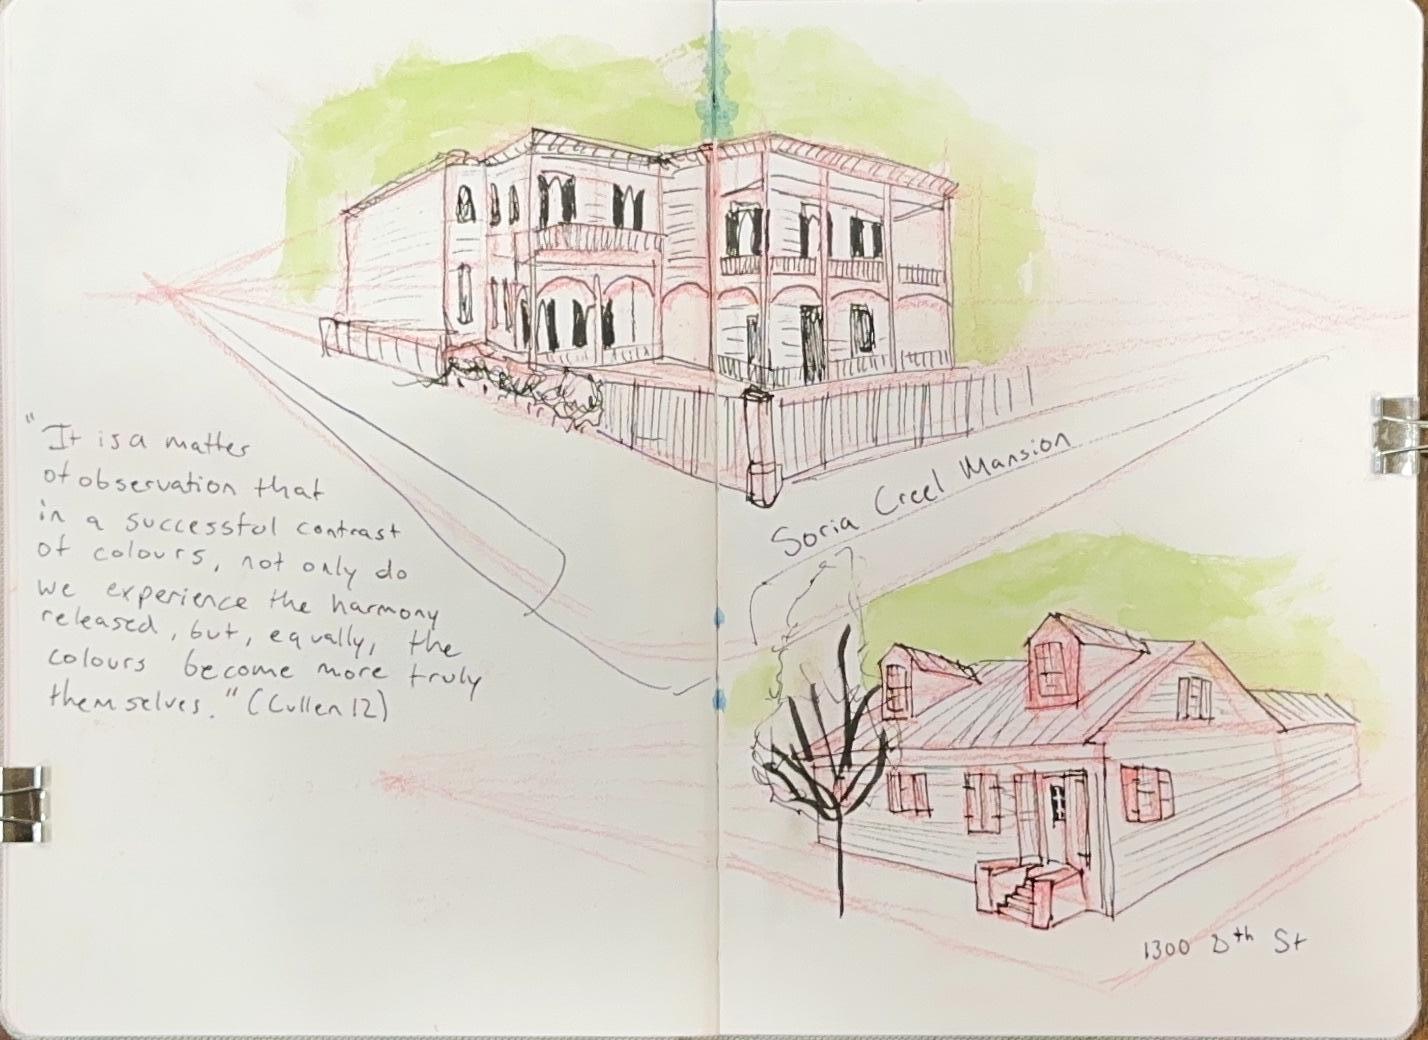 "It is a matter
of observation that
in a successful contrast
of colours, not only do
we experience the harmony
released, but, equally, the
colours become more truly
themselves." (Cullen 12)
Soria Creel Mansion
1300 8th St